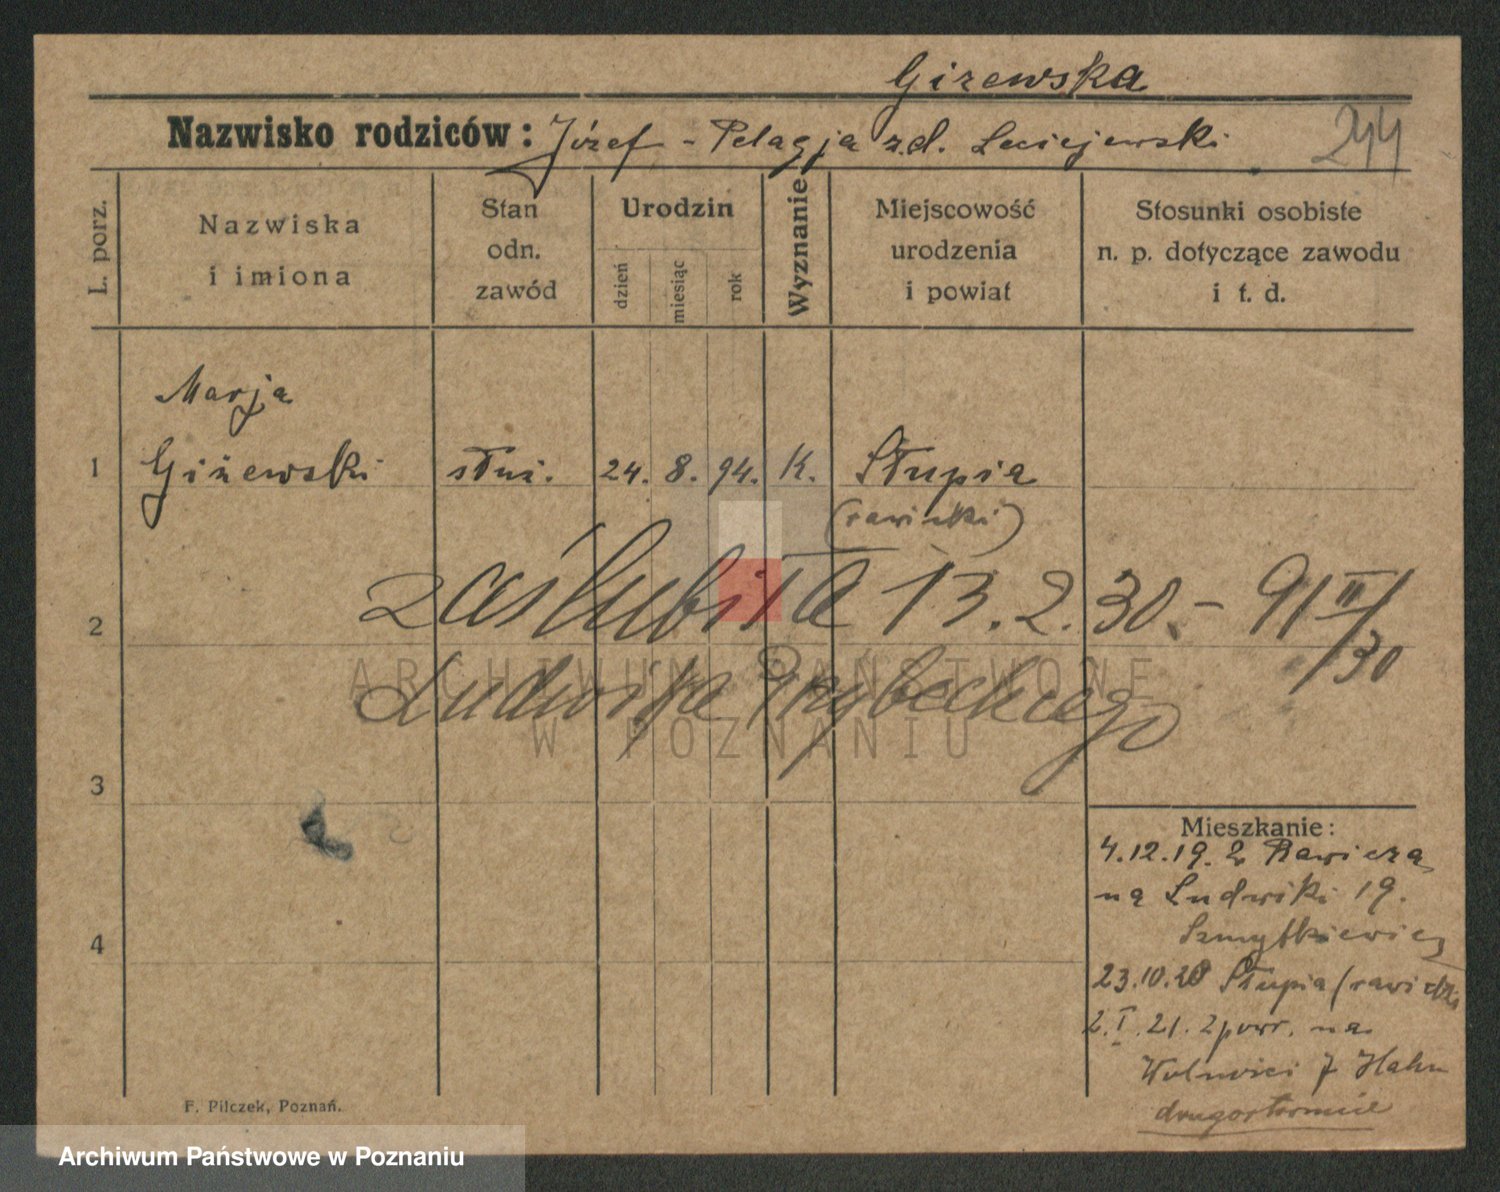 Giżewska
Nazwisko rodziców: Józef - Pelagja zd. Leciejewski 244
L. porz.
Nazwiska i imiona
Stan odn. zawód
Urodzin
dzień
miesiąc
rok
Wyznanie
Miejscowość urodzenia i powiat
Stosunki osobiste n. p. dotyczące zawodu i t. d.
Marja
1 Giżewski służ. 24. 8. 94. K. Słupia
(rawicki)
2 zaślubiła 13.2.30. - 91/II/30
Ludwika
ARCHIWUM PAŃSTWOWE
W POZNANIU
3
Mieszkanie:
4.12.19. z Rawicza
na Ludwiki 19.
4 Szmytkiewicz
23.10.20 Słupia (rawicki
2.I.21. z powr. na
Wolności 7 Hahn
F. Pilczek, Poznań.
Archiwum Państwowe w Poznaniu